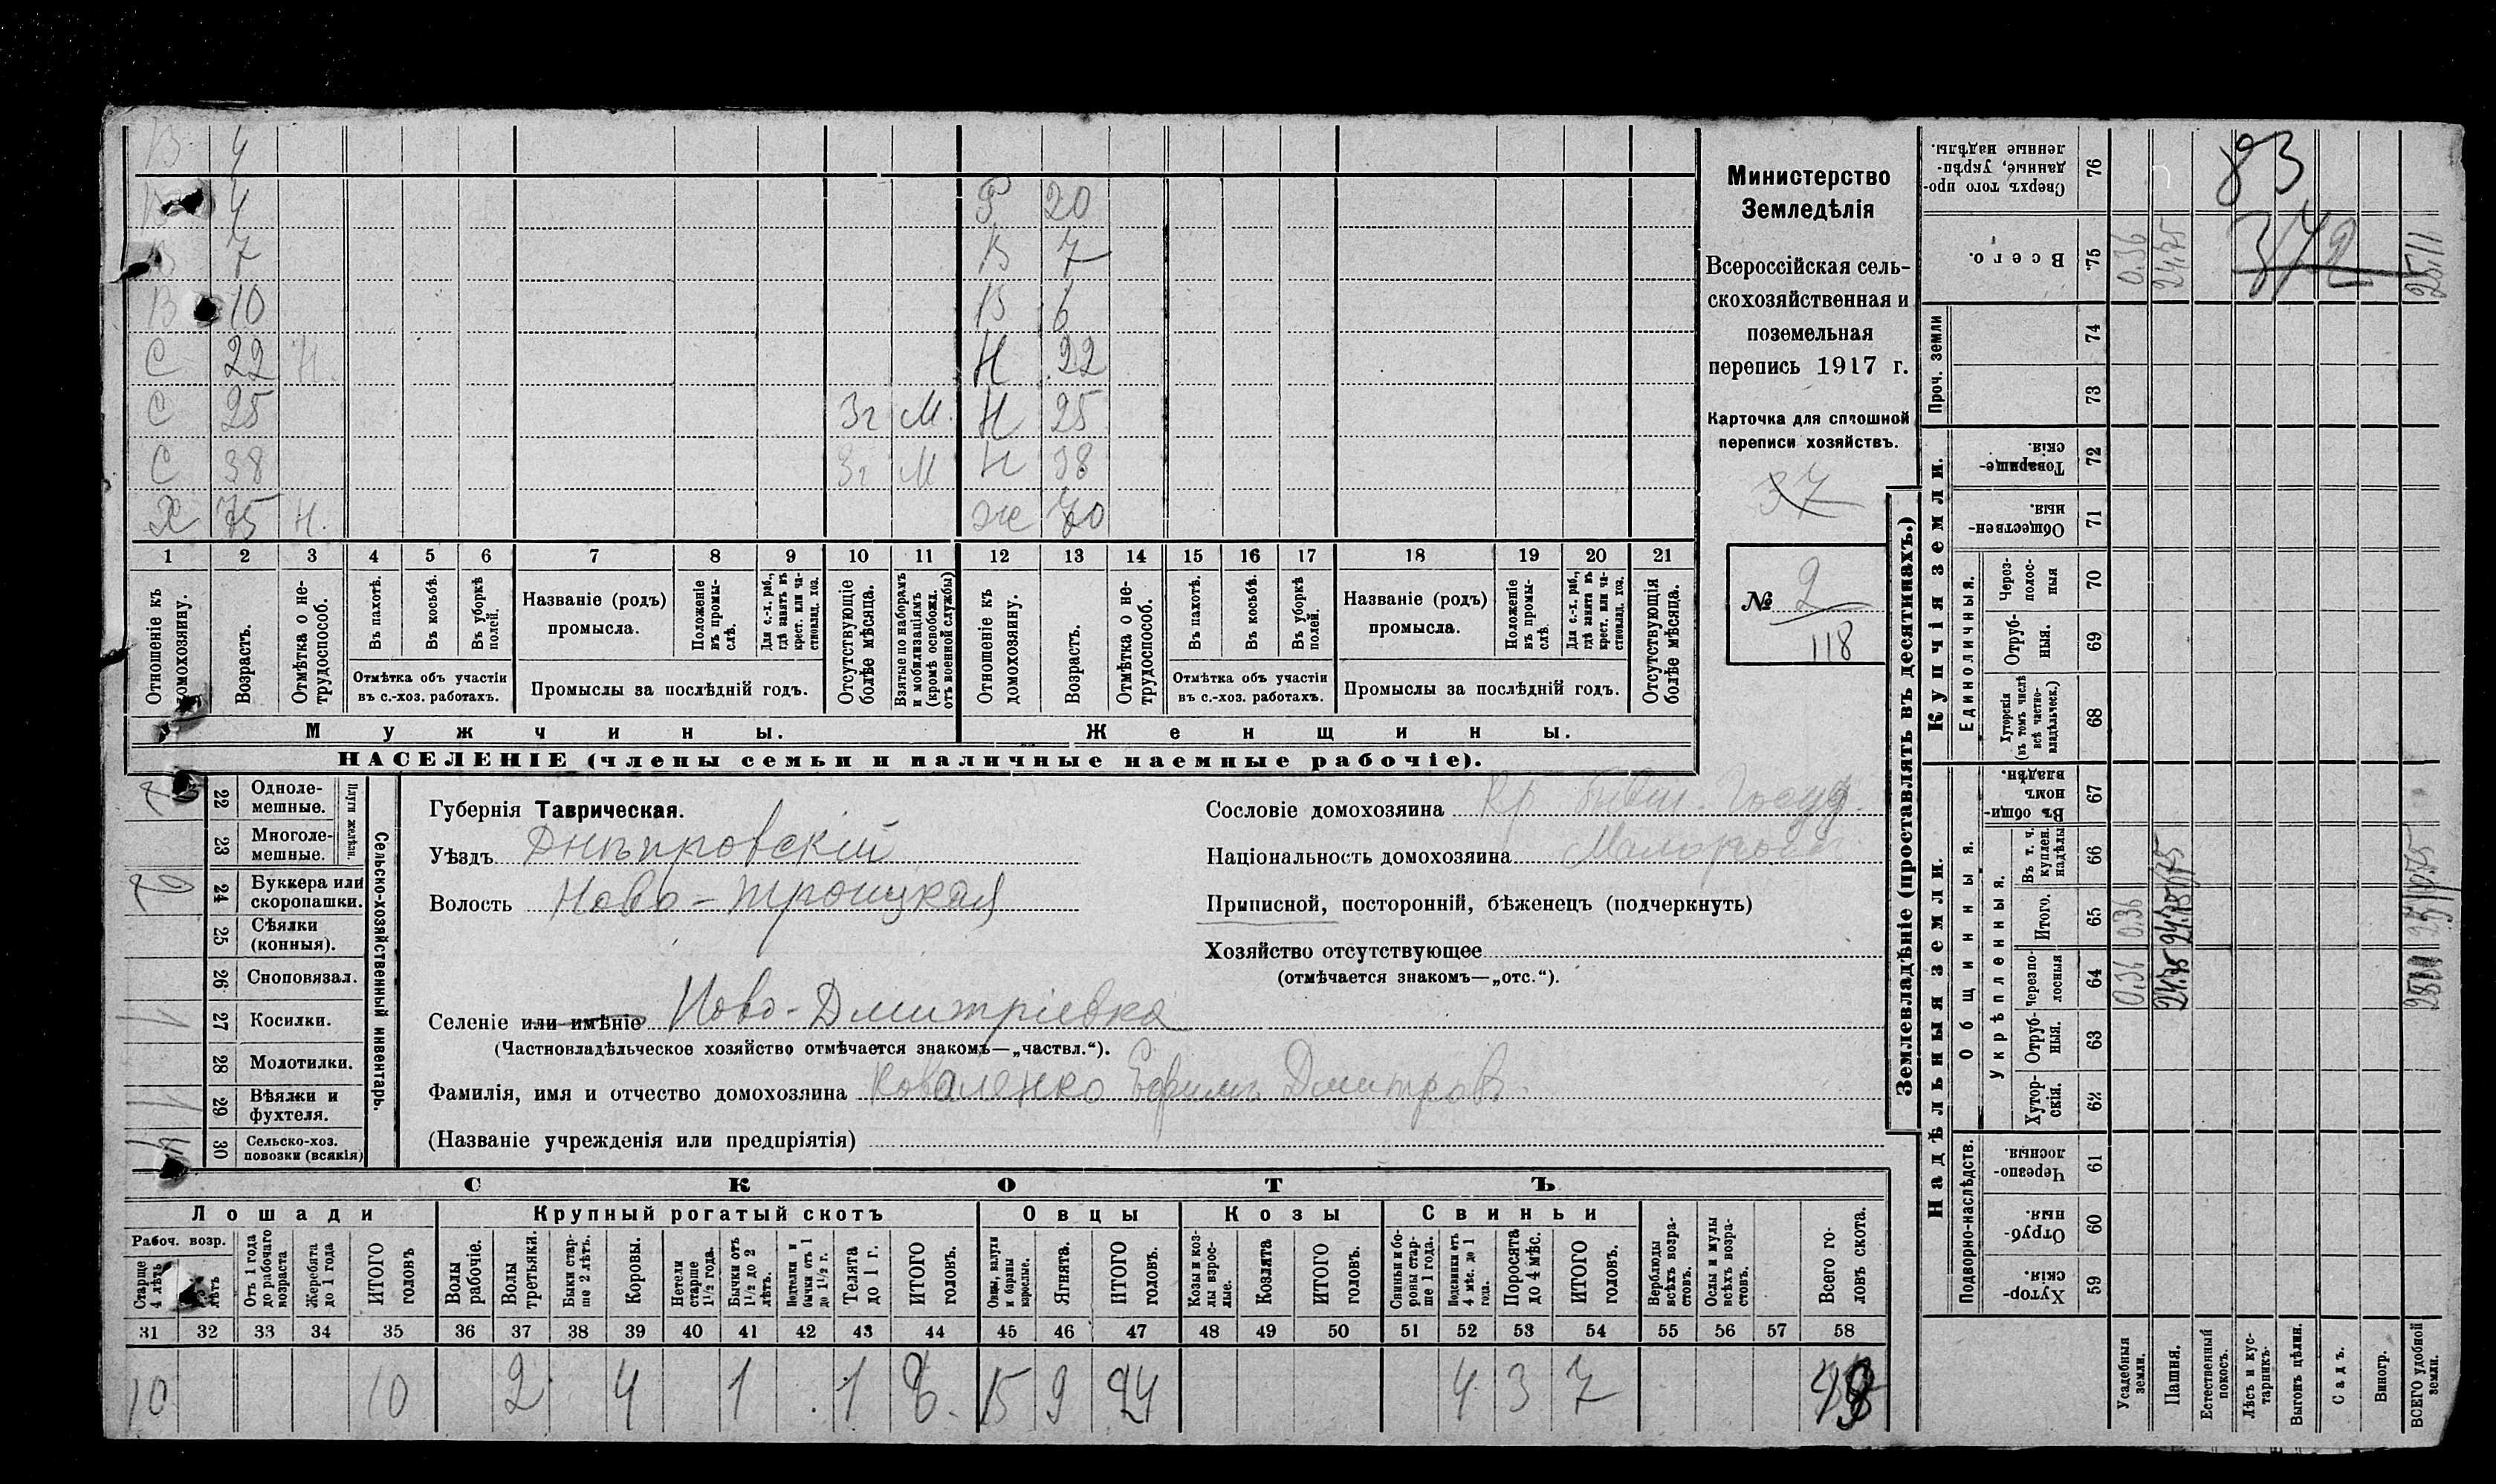 В 4
В 4 Р 20
В 7 В 7
В 10 В 6
С 22 Н. Н 22
С 25 3г М. Н 25
С 38 3г М Н 38
Х 75 Н. Ж 70
1 2 3 4 5 6 7 8 9 10 11 12 13 14 15 16 17 18 19 20 21
Отношеніе къ домохозяину.
Возрастъ.
Отмѣтка о не-трудоспособ.
Въ пахотѣ.
Въ косьбѣ.
Въ уборкѣ полей.
Отмѣтка объ участіи
въ с.-хоз. работахъ.
Названіе (родъ)
промысла.
Положеніе въ промы-слѣ.
Для с.-х. раб., гдѣ занятъ въ крест. или ча-стновлад. хоз.
Промыслы за послѣдній годъ.
Отсутствующіе болѣе мѣсяца.
Взятые по наборамъ и мобилизаціямъ (кромѣ освобожд. отъ военной службы)
Отношеніе къ домохозяину.
Возрастъ.
Отмѣтка о не-трудоспособ.
Въ пахотѣ.
Въ косьбѣ.
Въ уборкѣ полей.
Отмѣтка объ участіи
въ с.-хоз. работахъ.
Названіе (родъ)
промысла.
Положеніе въ промы-слѣ
Для с.-х. раб., гдѣ занята въ крест. или ча-стновлад. хоз.
Промыслы за послѣдній годъ.
Отсутствующія болѣе мѣсяца.
Мужчины.
Женщины.
НАСЕЛЕНІЕ (члены семьи и наличные наемные рабочіе).
Министерство
Земледѣлія
Всероссійская сель-
скохозяйственная и
поземельная
перепись 1917 г.
Карточка для сплошной
переписи хозяйствъ.
37
№ 2
118
22 Однолемешные.
23 Многолемешные.
Плуги желѣзн.
2 24 Буккера или скоропашки.
25 Сѣялки (конныя).
26 Сноповязал.
1 27 Косилки.
28 Молотилки.
1 29 Вѣялки и фухтеля.
30 Сельско-хоз. повозки (всякія)
Сельско-хозяйственный инвентарь.
Губернія Таврическая.
Уѣздъ Днѣпровскій
Волость Ново-Троицкая
Сословіе домохозяина Кр. бывш. Госуд.
Національность домохозяина Малоросс.
Приписной, посторонній, бѣженецъ (подчеркнуть)
Хозяйство отсутствующее
(отмѣчается знакомъ—„отс.“).
Селеніе или имѣніе Ново-Дмитріевка
(Частновладѣльческое хозяйство отмѣчается знакомъ—„частвл.“).
Фамилія, имя и отчество домохозяина Коваленко Ефимъ Дмитров.
(Названіе учрежденія или предпріятія)
СКОТЪ
Лошади
Крупный рогатый скотъ
Овцы
Козы
Свиньи
Рабоч. возр.
Старше 4 лѣтъ
лѣтъ
Отъ 1 года до рабочаго возраста
Жеребята до 1 года
ИТОГО головъ
Волы рабочіе.
Волы третьяки.
Быки стар-ше 2 лѣтъ.
Коровы.
Нетели старше 1½ года.
Бычки отъ 1½ до 2 лѣтъ.
Подтелки и бычки отъ 1 до 1½ г.
Телята до 1 г.
ИТОГО головъ.
Овцы, валухи и бараны взрослые.
Ягнята.
ИТОГО головъ.
Козы и коз-лы взрос-лые.
Козлята
ИТОГО головъ.
Свиньи и бо-ровы стар-ше 1 года.
Подсвинки отъ 4 мѣс. до 1 года.
Поросята до 4 мѣс.
ИТОГО головъ.
Верблюды всѣхъ возра-стовъ.
Ослы и мулы всѣхъ возра-стовъ.
Всего го-ловъ скота.
31 32 33 34 35 36 37 38 39 40 41 42 43 44 45 46 47 48 49 50 51 52 53 54 55 56 57 58
10 10 2 4 1 1 8 15 9 24 4 3 7 49
Землевладѣніе (проставлять въ десятинахъ.)
Купчія земли.
Надѣльныя земли.
Проч. земли
Единоличныя.
Общинныя.
Укрѣпленныя.
Подворно-наслѣдств.
76 Сверхъ того про-данные, укрѣп-ленные надѣлы.
83
75 Всего.
0.36 24.75 372 25.11
74
73
72 Товарище-скія.
71 Обществен-ныя.
70 Через-полос-ныя
69 Отруб-ныя.
68 Хуторскія (въ томъ числѣ всѣ частно-владѣльческ.)
67 Въ общин-номъ владѣн.
66 Въ т. ч. куплен. надѣлы
65 Итого.
0.36 24.75
64 Черезпо-лосныя
0.36 24.75
63 Отруб-ныя.
62 Хутор-скія.
61 Черезпо-лосныя.
60 Отруб-ныя.
59 Хутор-скія.
Усадебныя земли.
Пашня.
Естественный покосъ.
Лѣсъ и кус-тарникъ.
Выгонъ цѣлин.
Садъ.
Виногр.
ВСЕГО удобной земли.